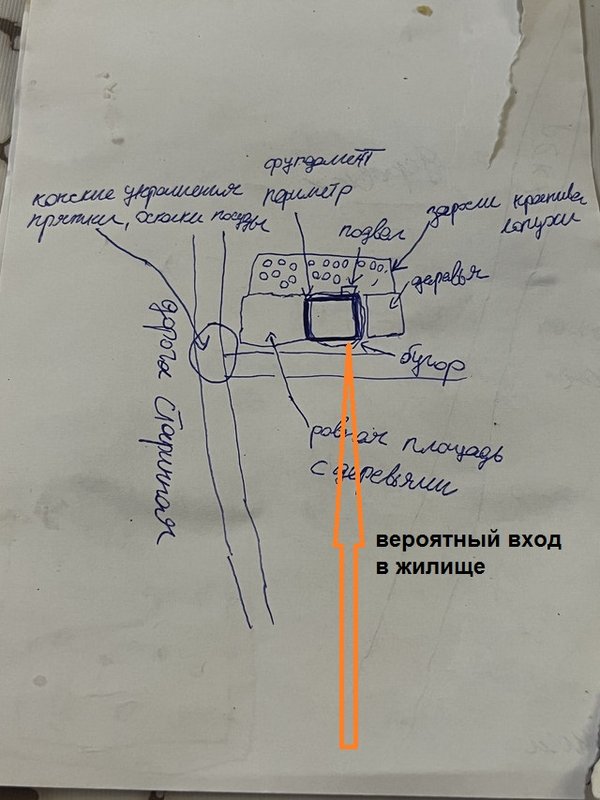 фундамент
периметр
конские украшения
пряжки, осколки посуды
подвал
заросли крапива
лопухи
деревья
бугор
дорога старинная
ровная площадь
с деревьями
вероятный вход
в жилище